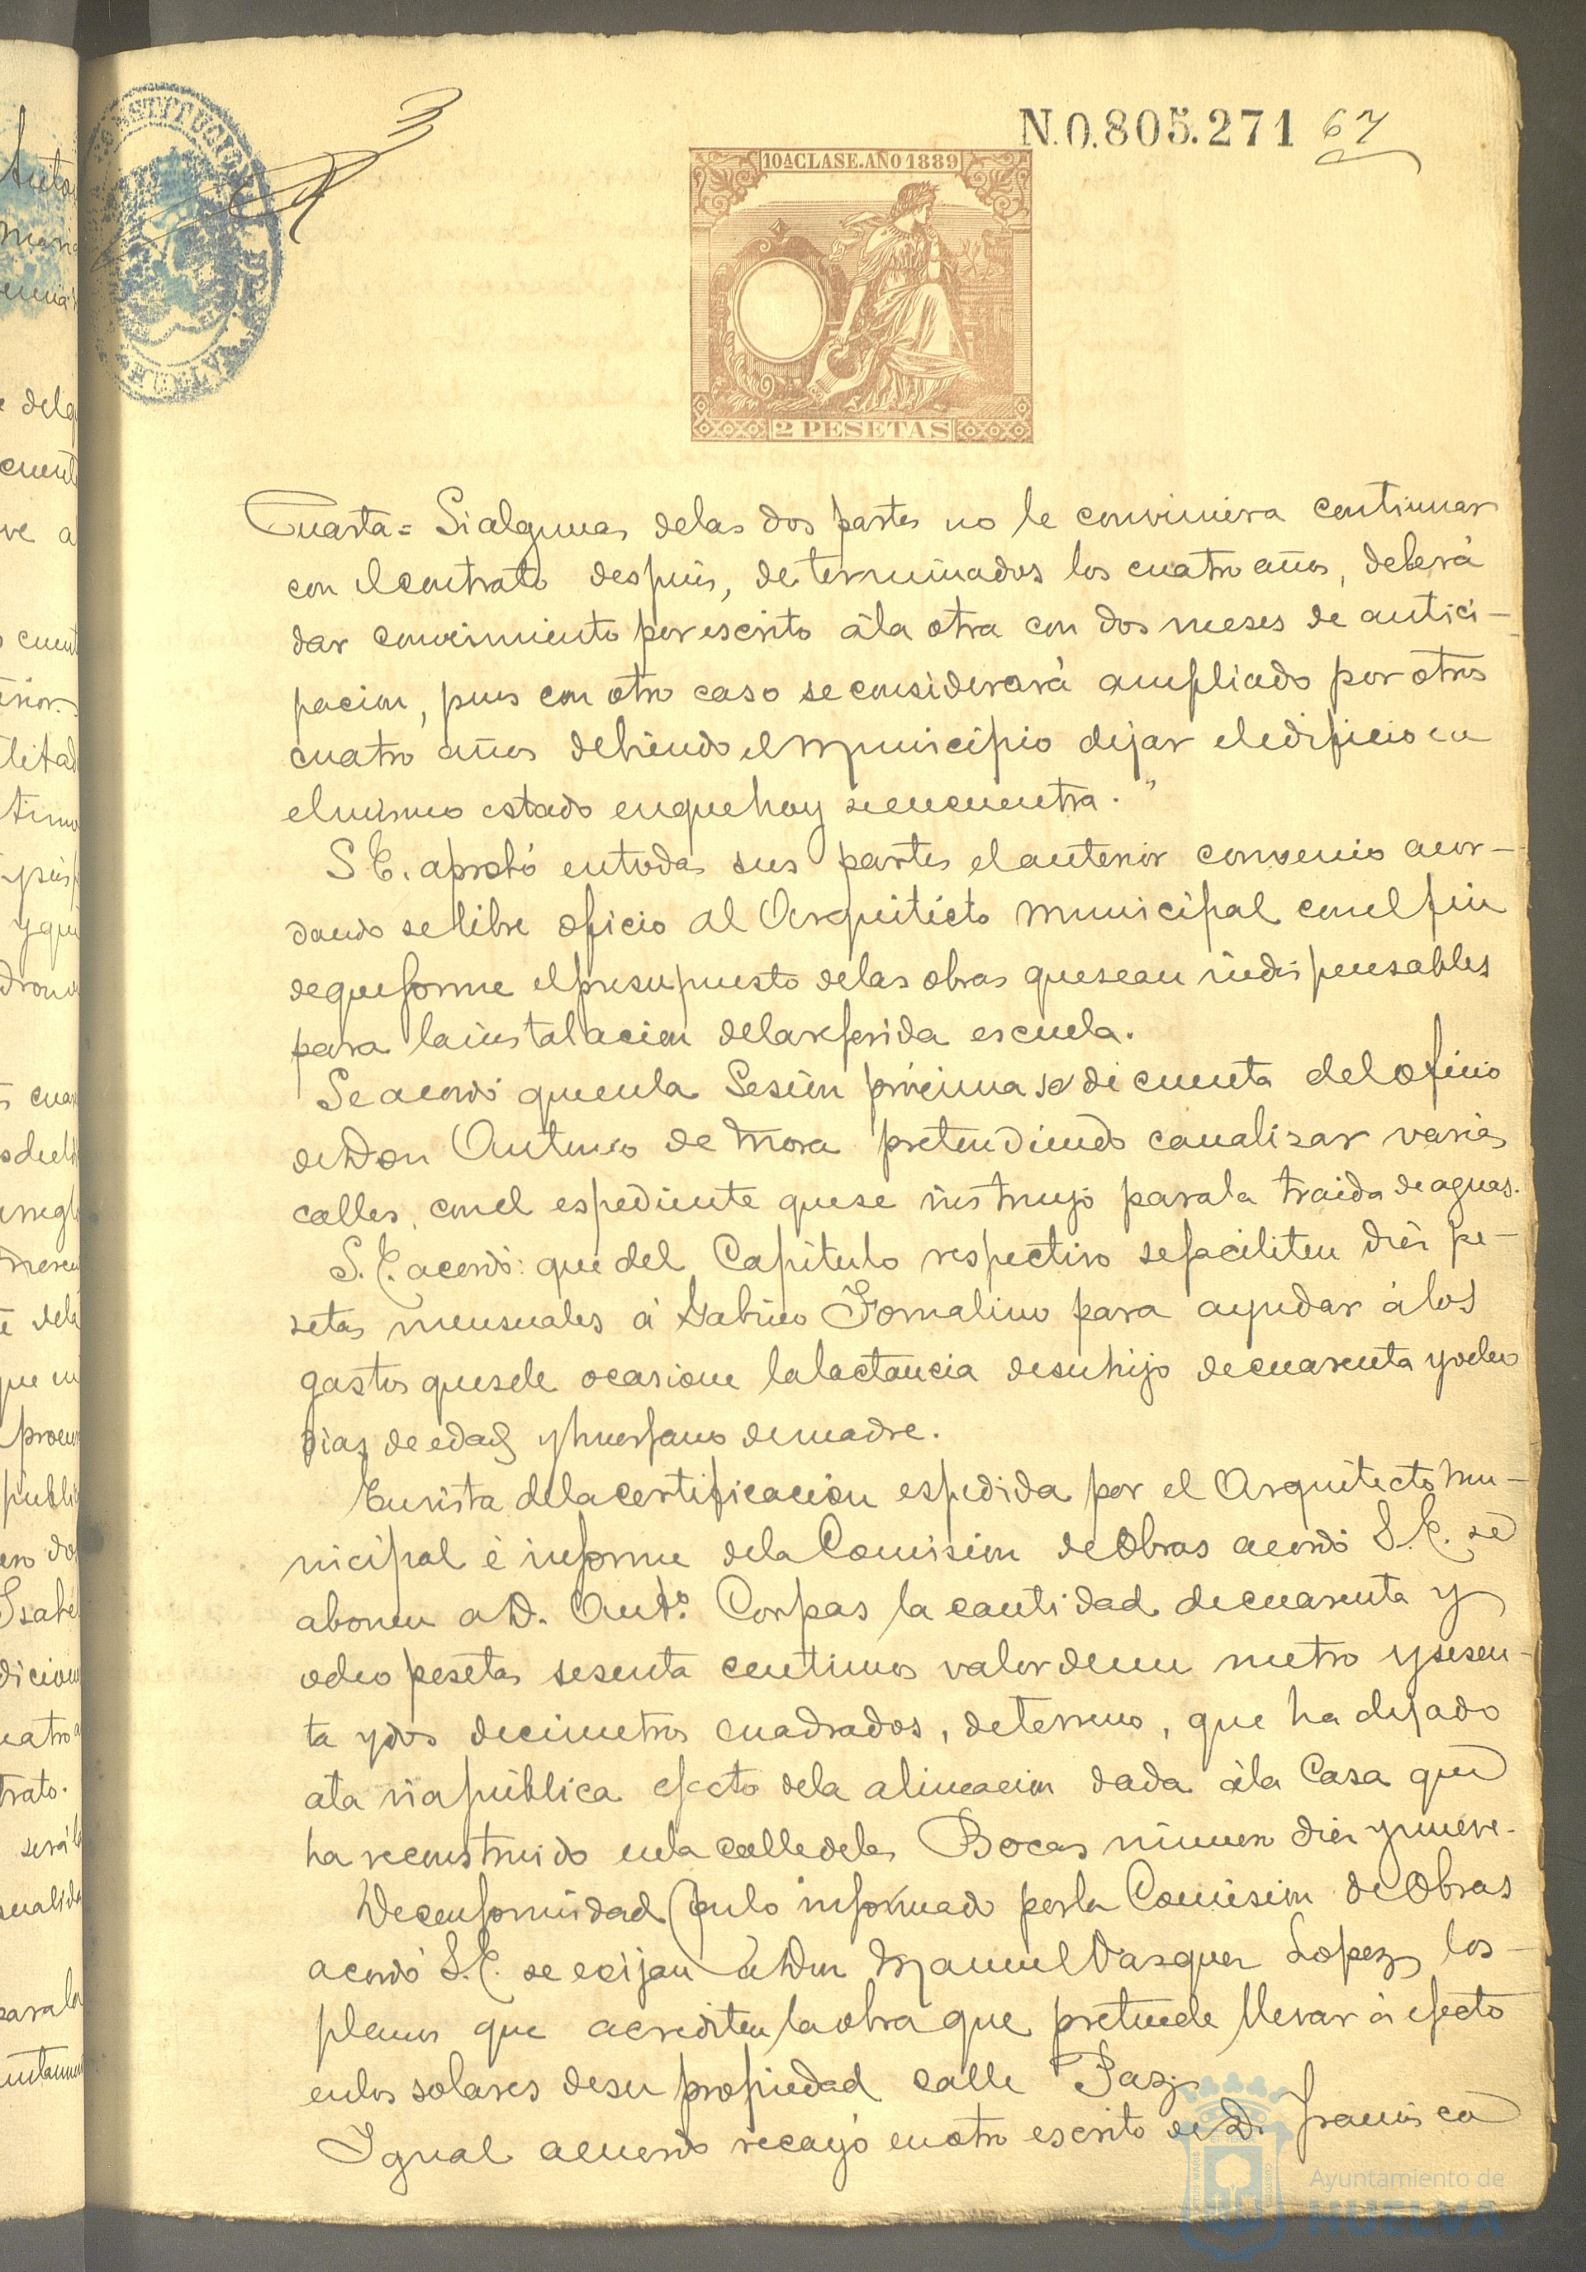 N.0.805.271 67
10ª CLASE. AÑO 1889
2 PESETAS
Cuarta = Si alguna, de las dos partes no le conviniera continuar
con el contrato despues, de terminados los cuatro años, deberá
dar conocimiento por escrito á la otra con dos meses de antici-
pacion, pues con otro caso se considerará ampliado por otros
cuatro años debiendo el Municipio dejar el edificio en
el mismo estado en que hoy se encuentra."
S. E. aprobó en todas sus partes el anterior convenio acor-
dando se libre oficio al Arquitécto municipal con el fin
de que forme el presupuesto de las obras que sean indispensables
para la instalacion de la referida escuela.
Se acordó que en la Sesión próxima se dé cuenta del oficio
de Don Antonio de Mora pretendiendo canalizar varias
calles, con el espediente que se instruyó para la traida de aguas.
S. E. acordó: que del Capítulo respectivo se faciliten diéz pe-
setas mensuales á Gabino Fornalino para ayudar á los
gastos que se le ocasione la lactancia de su hijo de cuarenta y ocho
dias de edad y huerfano de madre.
En vista de la certificación espedida por el Arquitecto Mu-
nicipal é informe de la Comision de Obras acordó S. E. se
abonen a D. Antº Corpas la cantidad de cuarenta y
ocho pesetas sesenta centimos valor de un metro y sesen-
ta y dos decimetros cuadrados, de terreno, que ha dejado
a la via pública efecto de la alineacion dada á la Casa que
ha reconstruido en la calle de las Bocas número diéz y nueve.
De conformidad con lo informado por la Comisión de Obras
acordó S. E. se exijan á Don Manuel Vazquez Lopez los
planos que acrediten la obra que pretende llevar á efecto
en los solares de su propiedad calle Paz.
Igual acuerdo recayó en otro escrito de D. Francisco
Ayuntamiento de
HUELVA